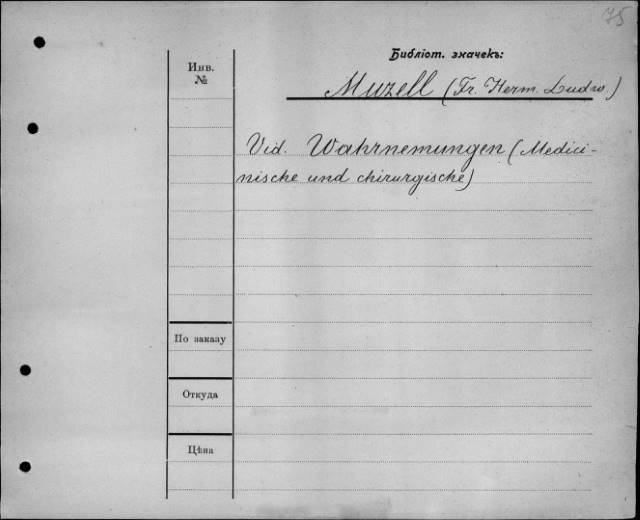 75
Библіот. значекъ:
Инв.
№
Muzell (Fr. Herm. Ludw.)
Vid. Wahrnemungen (Medici-
nische und chirurgische)
По заказу
Откуда
Цѣна